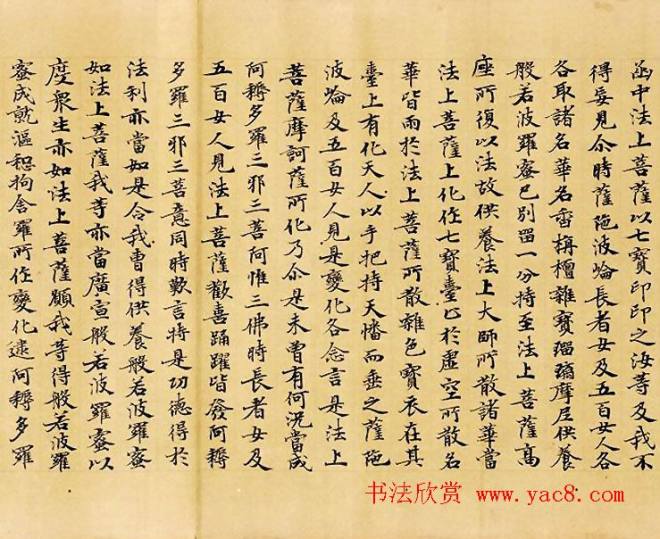 函中法上菩薩以七寶印印之汝等及我不
得妄見尒時薩陁波崘長者女及五百女人各
各取諸名華名香栴檀雜寶瑠璃摩尼供養
般若波羅蜜已別留一分持至法上菩薩高
座所復以法故供養法上大師所散諸華當
法上菩薩上化作七寶臺上於虛空所散名
華皆雨於法上菩薩所散雜色寶衣在其
臺上有化天人以手把持天幡而垂之薩陁
波崘及五百女人見是變化各念言是法上
菩薩摩訶薩所化乃尒是未曾有何況當成
阿耨多羅三邪三菩阿惟三佛時長者女及
五百女人見法上菩薩歡喜踊躍皆發阿耨
多羅三邪三菩意同時歎言持是功德得於
法利亦當如是令我曹得供養般若波羅蜜
如法上菩薩我等亦當廣宣般若波羅蜜以
度衆生亦如法上菩薩願我等得般若波羅
蜜成就漚惒拘舍羅所作變化逮阿耨多羅
书法欣赏 www.yac8.com